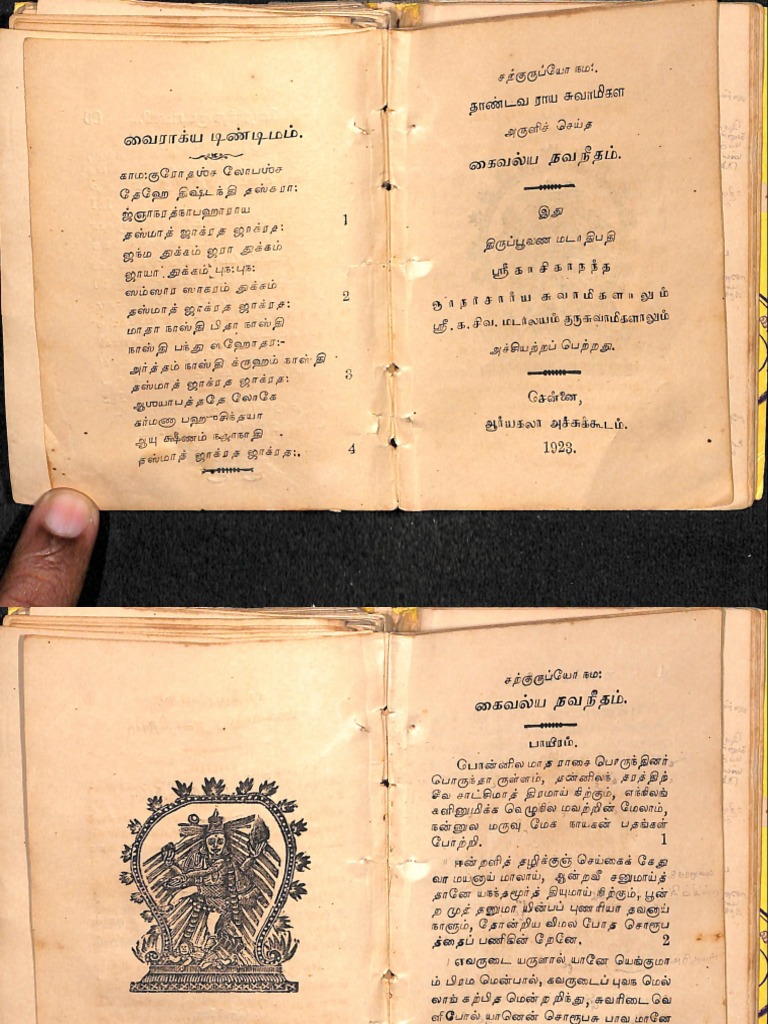 வைராக்ய டிண்டிமம்.
காம:குரோதஶ்ச லோபஶ்ச
தேஹே திஷ்டந்தி தஸ்கரா:
ஜ்ஞாநரத்நாபஹாராய
தஸ்மாத் ஜாக்ரத ஜாக்ரத: 1
ஜந்ம துக்கம் ஜரா துக்கம்
ஜாயா துக்கம் புந:புந:
ஸம்ஸார ஸாகரம் துக்கம்
தஸ்மாத் ஜாக்ரத ஜாக்ரத: 2
மாதா நாஸ்தி பிதா நாஸ்தி
நாஸ்தி பந்து ஸஹோதர:-
அர்த்தம் நாஸ்தி க்ருஹம் நாஸ்தி
தஸ்மாத் ஜாக்ரத ஜாக்ரத: 3
ஆஶயாபத்ததே லோகே
கர்மணா பஹுசிந்தயா
ஆயு க்ஷீணம் நஜாநாதி
தஸ்மாத் ஜாக்ரத ஜாக்ரத:. 4
சற்குருப்யோ நம:.
தாண்டவ ராய சுவாமிகள
அருளிச் செய்த
கைவல்ய நவநீதம்.
இது
திருப்பூவண மடாதிபதி
ஸ்ரீ காசிகாநந்த
சுவாமிகளாலும்
ஸ்ரீ. க. சிவ. மடாலயம் குருசுவாமிகளாலும்
அச்சியற்றப் பெற்றது.
சென்னை,
ஆர்யகலா அச்சுக்கூடம்.
1923.
சற்குருப்யோ நம:
கைவல்ய நவநீதம்.
பாயிரம்.
பொன்னில மாத ராசை பொருந்தினர்
பொருந்தா ருள்ளம், தன்னிலந் தரத்திற்
சீவ சாட்சிமாத் திரமாய் நிற்கும், எந்நிலங்
களினுமிக்க வெழுநில மவற்றின் மேலாம்,
நன்னில மருவு மேக நாயகன் பதங்கள்
போற்றி. 1
ஈன்றளித் தழிக்குஞ் செய்கைக் கேது
வா மயனாய் மாலாய், ஆன்றவீ சனுமாய்த்
தானே யநந்தமூர்த் தியுமாய் நிற்கும், பூன்
ற முத் தனுமா யின்பப் புணரியா தவனாய்
நாளும், தோன்றிய விமல போத சொரூப
த்தைப் பணிகின் றேனே. 2
எவருடை யருளால் யானே யெங்குமா
ம் பிரம மென்பால், கவருடைப் புவந மெல்
லாங் கற்பித மென்றறிந்து, சுவரிடை வெ
ளிபோல் யானென் சொரூபசு பாவ மானே